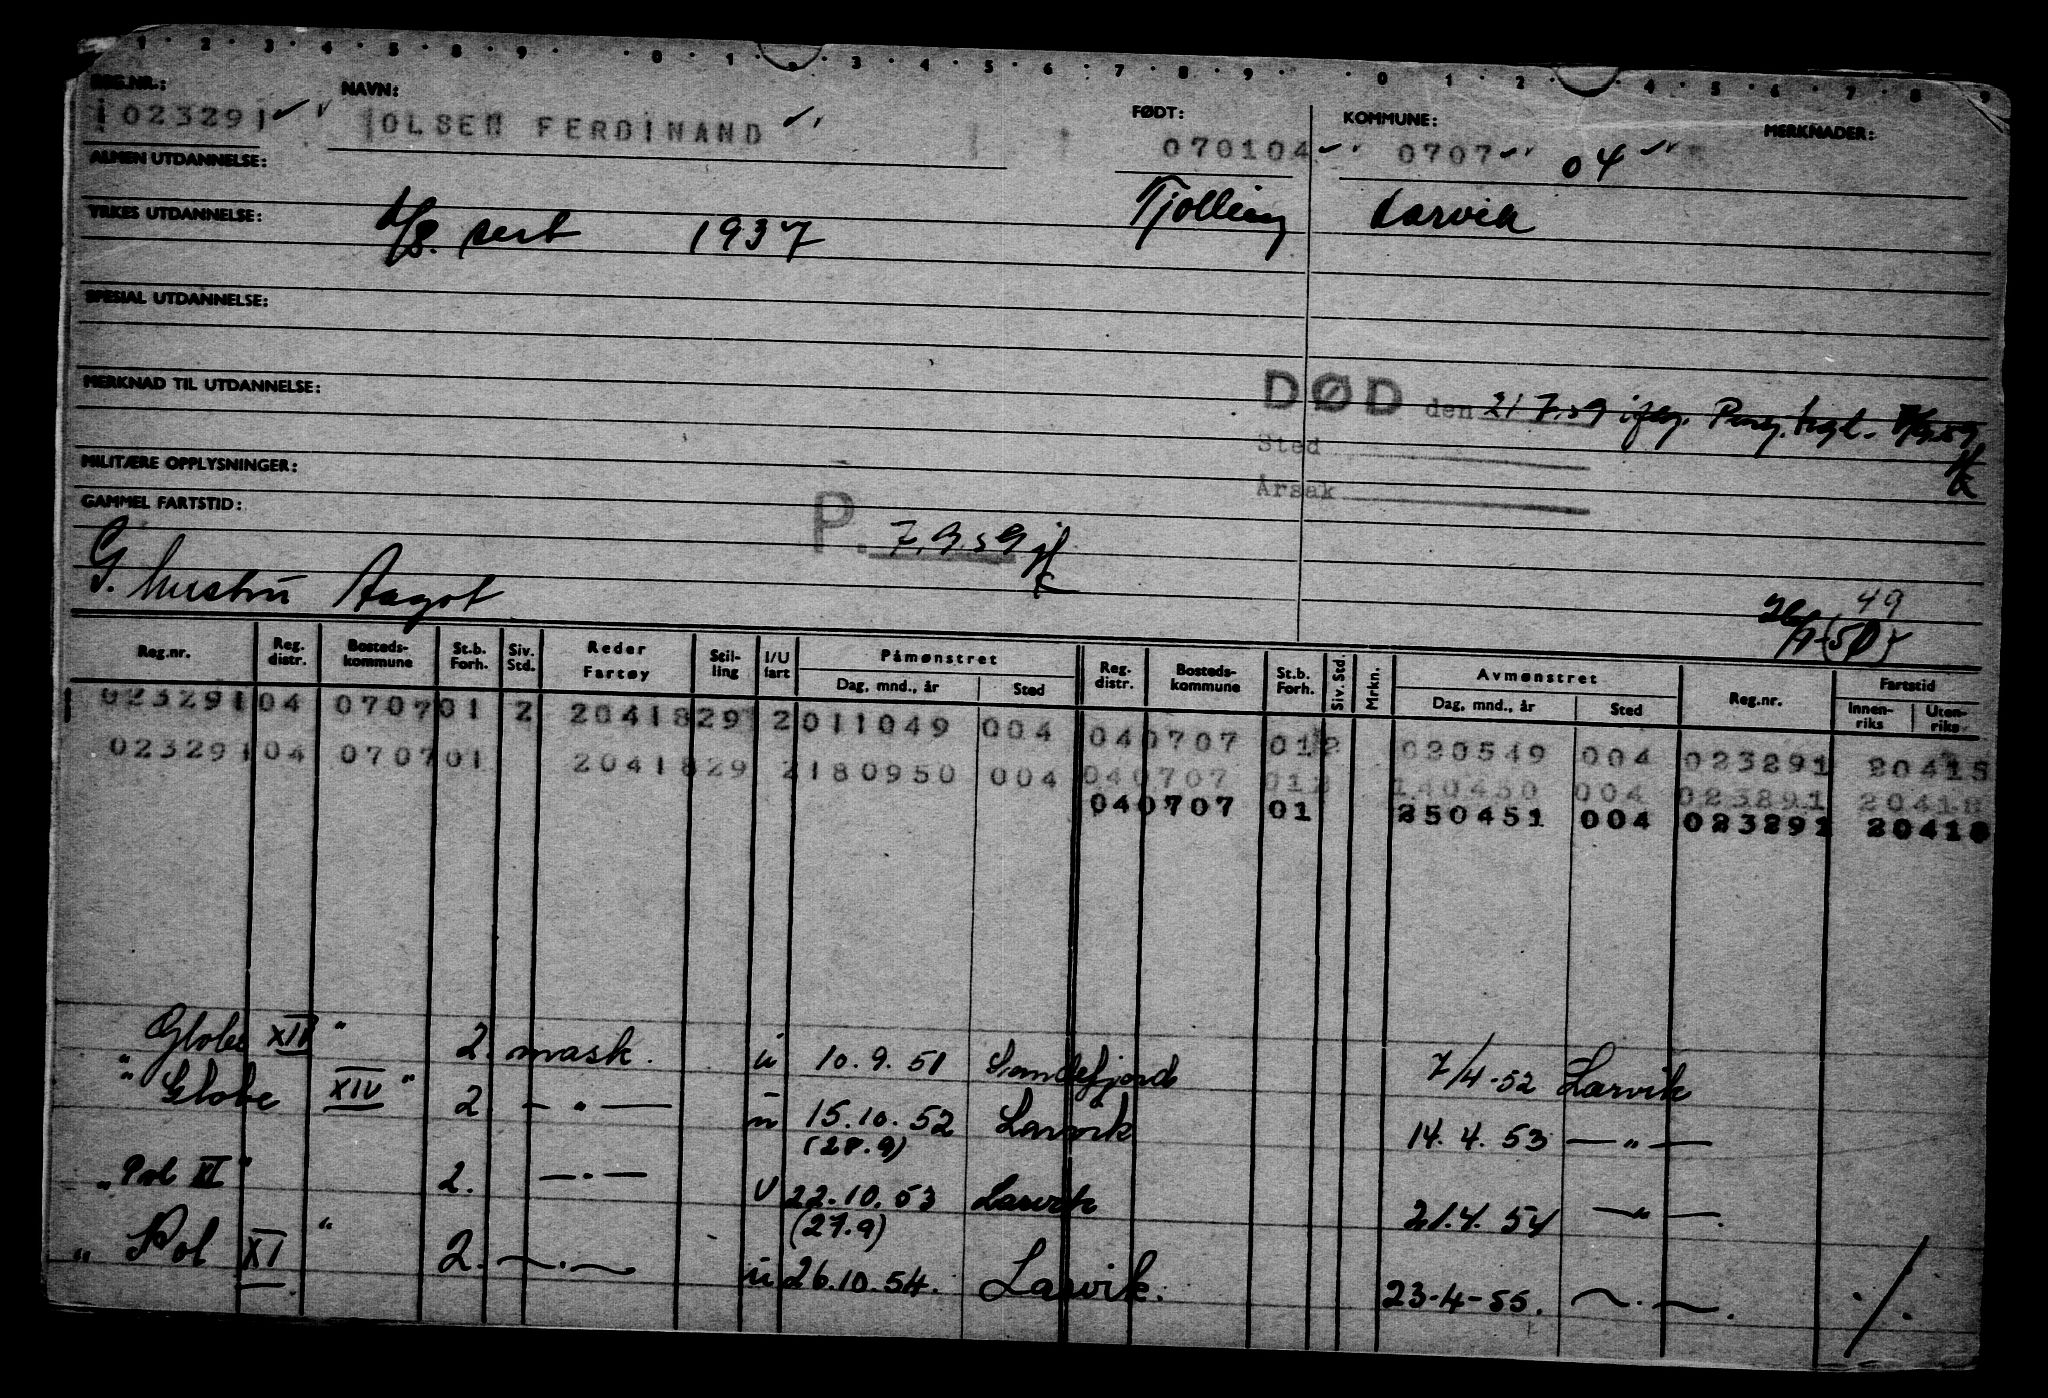 1 2 3 4 5 8 9 0 1 2 3 4 5 6 7 8 9 0 1 2 4 5 6 7 8 9
REG.NR.: NAVN: FØDT: KOMMUNE: MERKNADER:
023291 OLSEN FERDINAND 070104 0707 04
ALMEN UTDANNELSE:
Tjølling Larvik
YRKES UTDANNELSE: sert 1937
SPESIAL UTDANNELSE:
MERKNAD TIL UTDANNELSE:
DØD den 21 7.59 iflg.
Sted
MILITÆRE OPPLYSNINGER:
Årsak
GAMMEL FARTSTID:
P. 7.9.59
G. hustru Aagot
49
Reg.nr. Reg. distr. Bosteds-kommune St.b. Forh. Siv. Std. Reder Fartøy Stil-ling I/U fart Påmønstret Dag, mnd., år Sted Reg. distr. Bosteds-kommune St.b. Forh. Siv. Std. Mrkn. Avmønstret Dag, mnd., år Sted Reg.nr. Fartstid Innen-riks Uten-riks
023291 04 0707 01 2 2041829 2 011049 004 04 0707 01 2 020549 004 023291 20415
023291 04 0707 01 2041829 2 180950 004 04 0707 01 2 140450 004 023291 20418
04 0707 01 250451 004 023291 20418
Globe XII " 2. mask. u 10.9.51 Sandefjord 7/4-52 Larvik
" Globe XIV " 2 — " — u 15.10.52 Larvik 14.4.53 — " —
(28.9)
" Pol XI " 2. — " — U 22.10.53 Larvik 21.4.54 — " —.
(27.9)
" Pol XI " 2. — . — u 26.10.54. Larvik. 23-4-55. — . —.